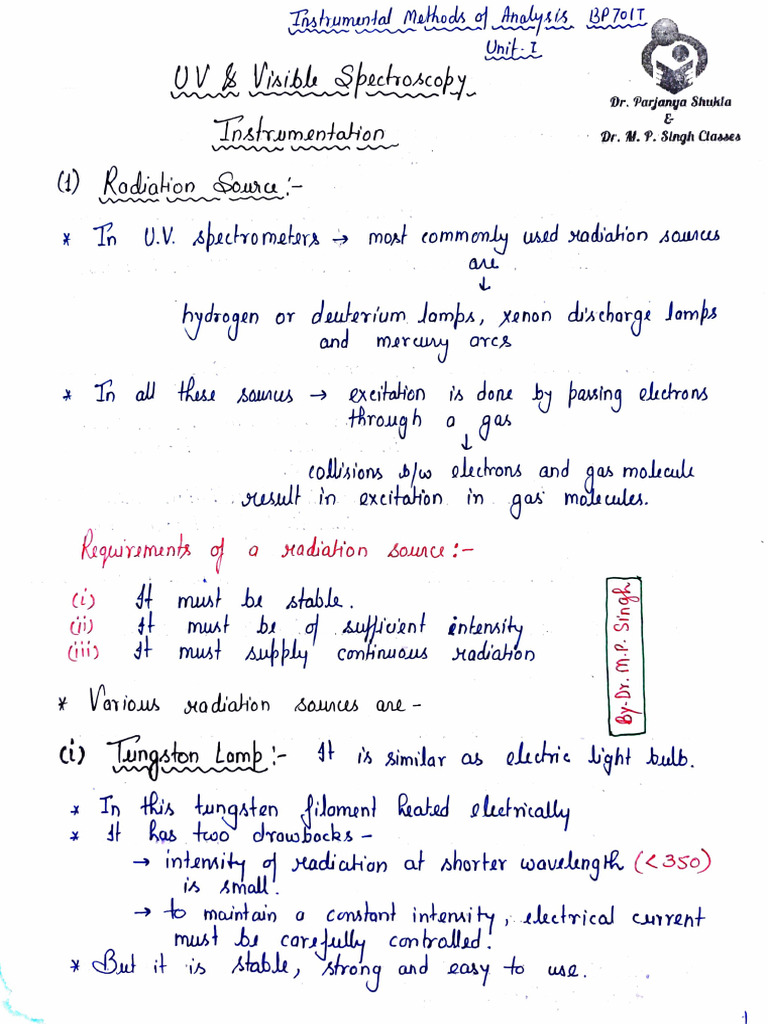 Instrumental Methods of Analysis BP701T
Unit-I
UV & Visible Spectroscopy
Instrumentation
Dr. Parjanya Shukla
&
Dr. M. P. Singh Classes
(1) Radiation Source:-
* In U.V. spectrometers → most commonly used radiation sources
are
↓
hydrogen or deuterium lamps, xenon discharge lamps
and mercury arcs
* In all these sources → excitation is done by passing electrons
through a gas
↓
collisions b/w electrons and gas molecule
result in excitation in gas molecules.
Requirements of a radiation source:-
(i) It must be stable.
(ii) It must be of sufficient intensity
(iii) It must supply continuous radiation
By-Dr. M.P. Singh
* Various radiation sources are -
(i) Tungston Lamp:- It is similar as electric light bulb.
* In this tungsten filament heated electrically
* It has two drawbacks -
→ intensity of radiation at shorter wavelength (<350)
is small.
→ to maintain a constant intensity, electrical current
must be carefully controlled.
* But it is stable, strong and easy to use.
1